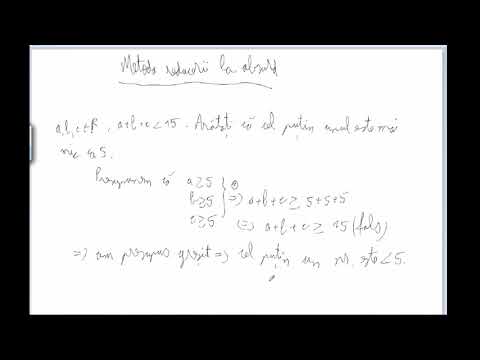 Metoda reducerii la absurd
a,b,c∈R, a+b+c<15. Arătați că cel puțin unul este mai
mic ca 5.
Presupunem că a≥5
b≥5 => a+b+c ≥ 5+5+5
c≥5 => a+b+c ≥ 15 (fals)
=> am presupus greșit => cel puțin un nr. este <5.